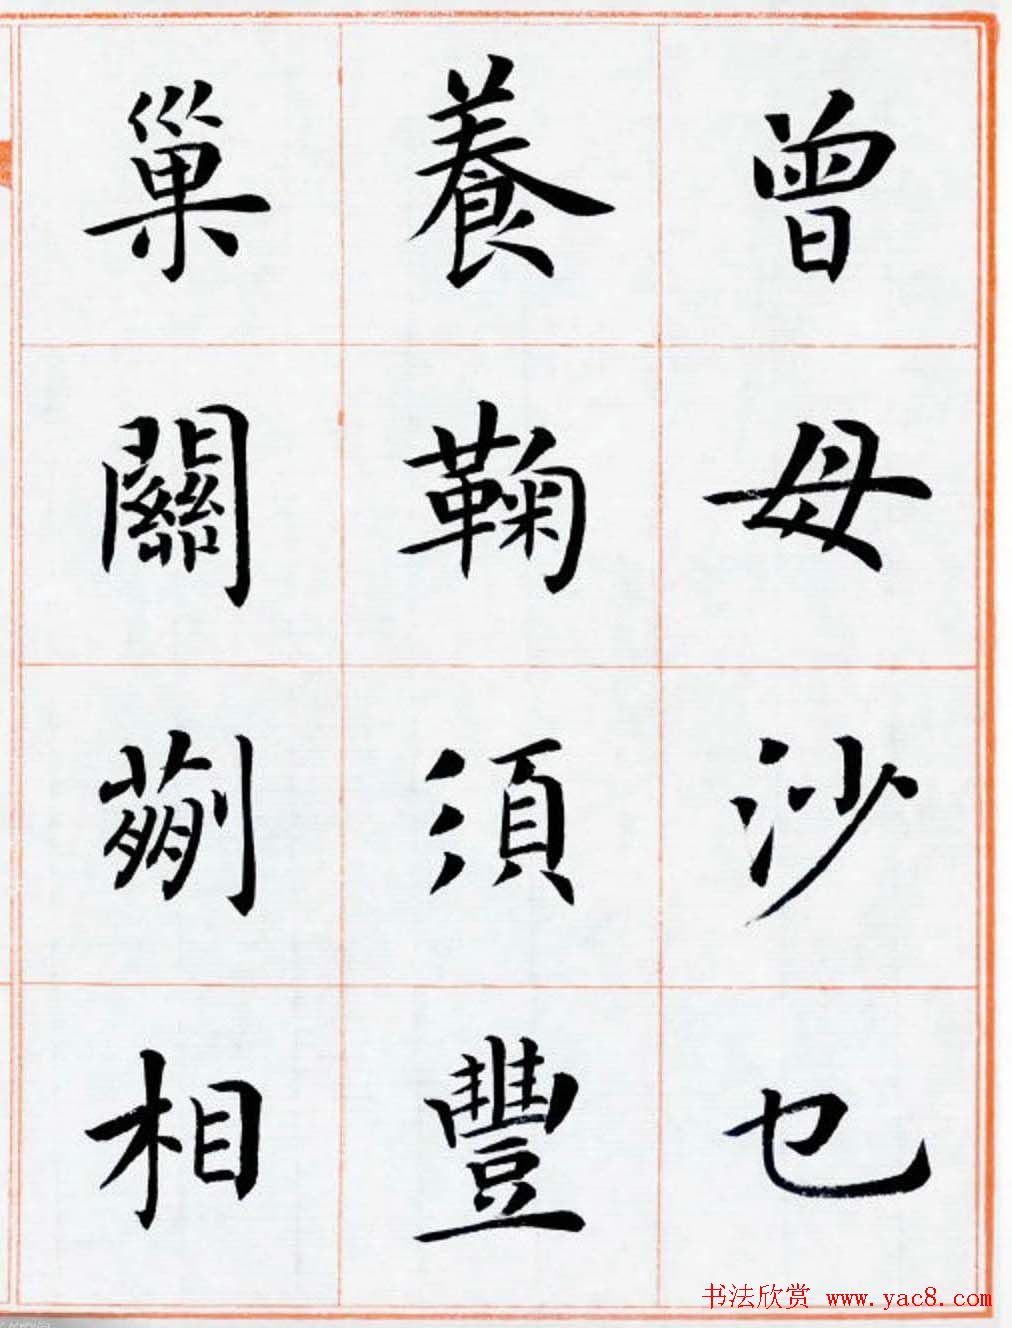 曾母沙乜
養鞠須豐
巢關蒯相
书法欣赏 www.yac8.com